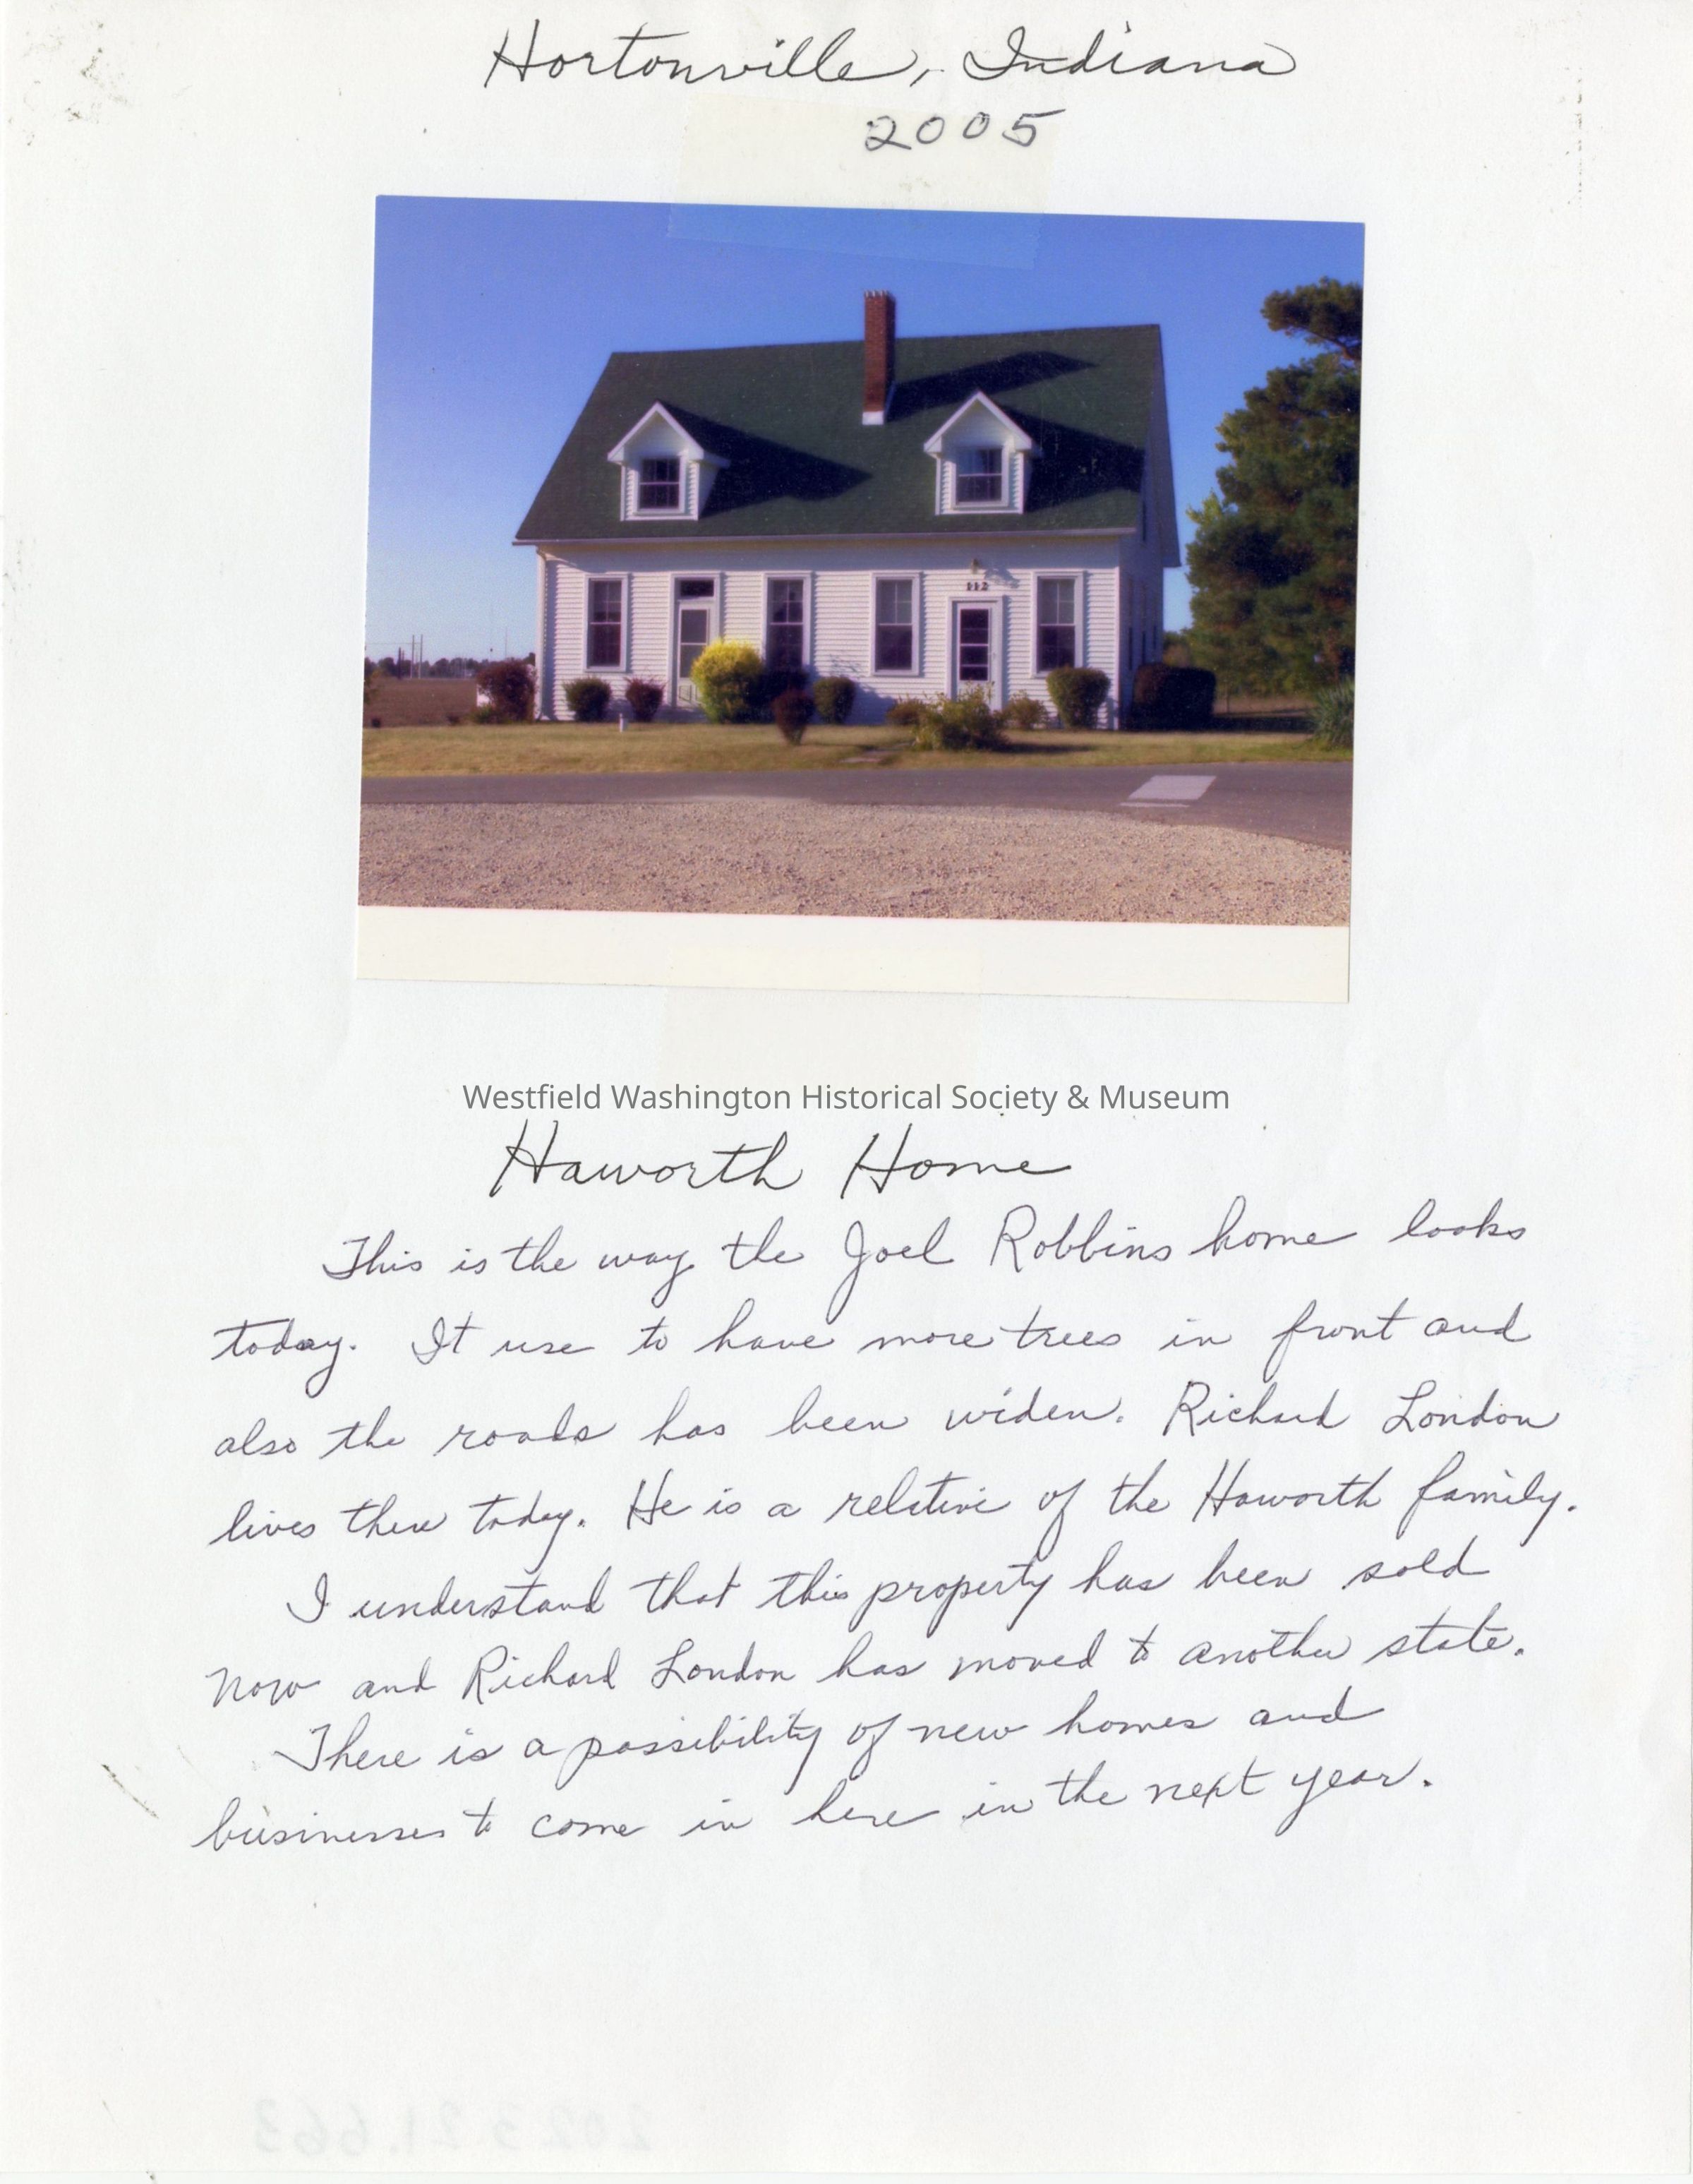 Hortonville, Indiana
2005
Westfield Washington Historical Society & Museum
Haworth Home
This is the way the Joel Robbins home looks
today. It use to have more trees in front and
also the roads has been widen. Richard London
lives there today. He is a relative of the Haworth family.
I understand that this property has been sold
now and Richard London has moved to another state.
There is a possibility of new homes and
businesses to come in here in the next year.
2023.21.663